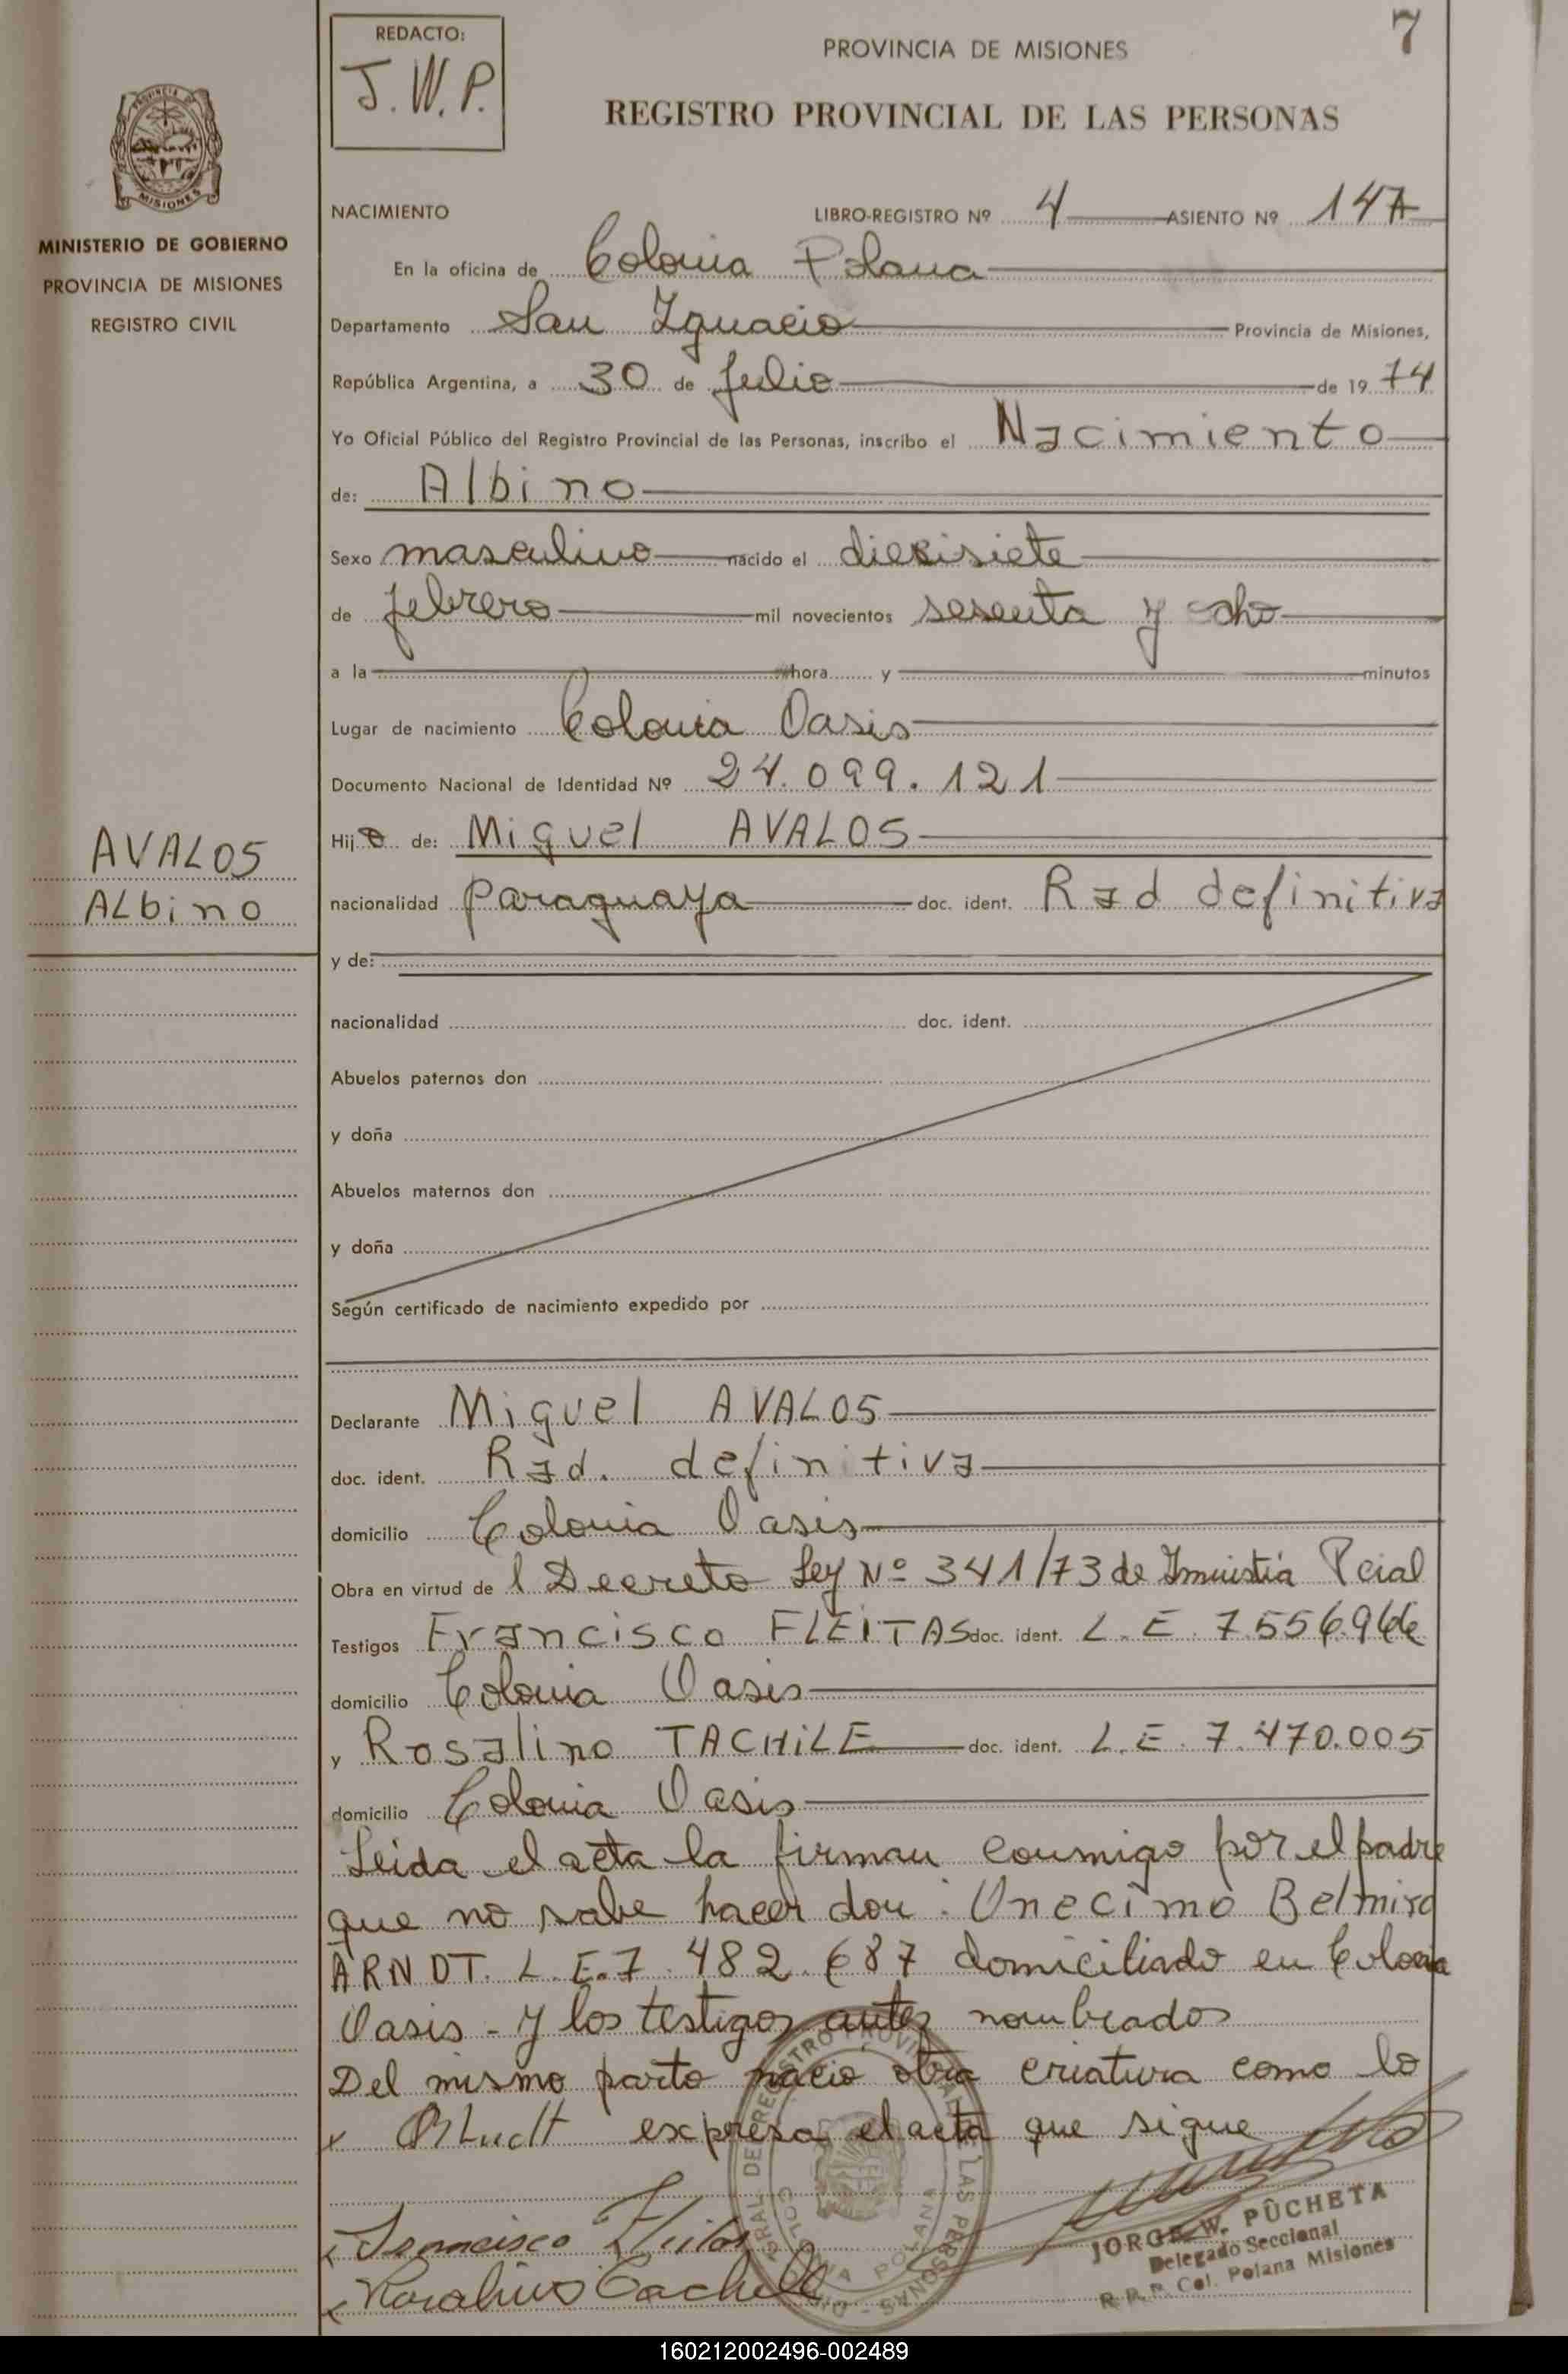 7
REDACTO:
J.W.P.
PROVINCIA DE MISIONES
REGISTRO PROVINCIAL DE LAS PERSONAS
MISIONES
MINISTERIO DE GOBIERNO
PROVINCIA DE MISIONES
REGISTRO CIVIL
AVALOS
ALbino
NACIMIENTO LIBRO-REGISTRO Nº 4 ASIENTO Nº 147
En la oficina de Colonia Polana
Departamento San Ignacio Provincia de Misiones,
República Argentina, a 30 de Julio de 19 74
Yo Oficial Público del Registro Provincial de las Personas, inscribo el Nacimiento
de: Albino
Sexo masculino nacido el diecisiete
de febrero mil novecientos sesenta y ocho
a la hora y minutos
Lugar de nacimiento Colonia Oasis
Documento Nacional de Identidad Nº 24.099.121
Hijo de: Miguel AVALOS
nacionalidad paraguaya doc. ident. Rad definitiva
y de:
nacionalidad doc. ident.
Abuelos paternos don
y doña
Abuelos maternos don
y doña
Según certificado de nacimiento expedido por
Declarante Miguel AVALOS
doc. ident. Rad. definitiva
domicilio Colonia Oasis
Obra en virtud de l Decreto Ley Nº 341/73 de Pcial
Testigos Francisco FLEITAS doc. ident. L.E. 7.556.966
domicilio Colonia Oasis
y Rosalino TACHiLE doc. ident. L.E. 7.470.005
domicilio Colonia Oasis
Leida el acta la firman conmigo por el padre
que no sabe hacer don: Onecimo Belmiro
ARNDT. L.E.7.482.687 domiciliado en Colonia
Oasis - y los testigos antes nombrados
Del mismo parto nacio otra criatura como lo
expresa el acta que sigue
Francisco Fleitas
Rosalino Tachile
COLONIA POLANA
JORGE W. PÛCHETA
Delegado Seccional
R.P.P. Col. Polana Misiones
160212002496-002489